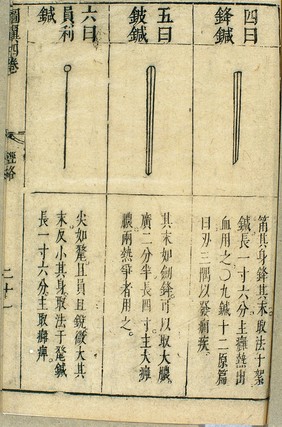 四曰
鋒鍼
筩其身鋒其末取法于絮
鍼長一寸六分主癰熱出
血用之〇九鍼十二原篇
曰刃三隅以發痼疾
五曰
鈹鍼
其末如劍鋒可以取大膿
廣二分半長四寸主大癰
膿兩熱爭者用之
六曰
員利
鍼
尖如氂且員且銳微大其
末反小其身取法于氂鍼
長一寸六分主取癰痺
四卷
經絡
二十一